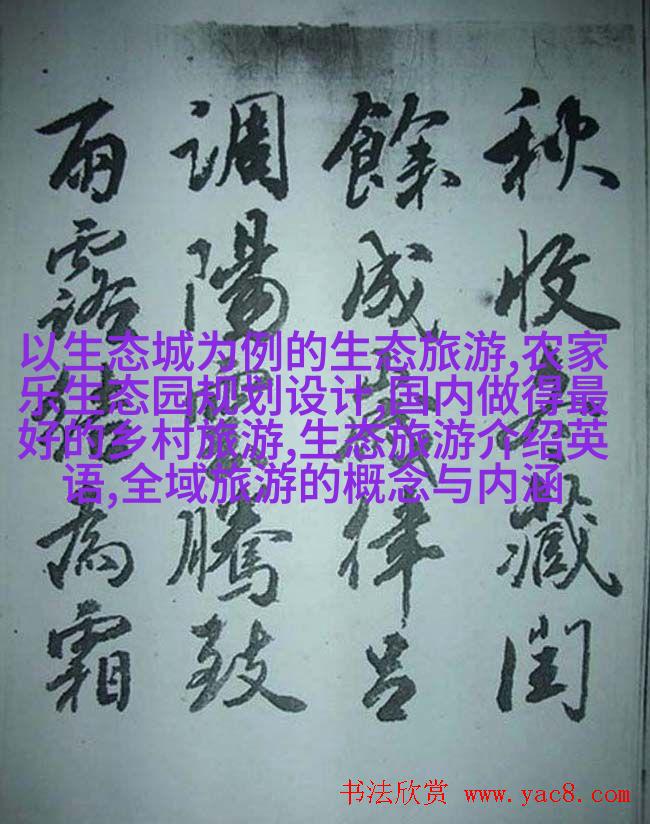 秋收冬藏閏
餘成歲律呂
調陽雲騰致
雨露結為霜
以生态城为例的生态旅游,农家
乐生态园规划设计,国内做得最
好的乡村旅游,生态旅游介绍英
语,全域旅游的概念与内涵
书法欣赏 www.yac8.com